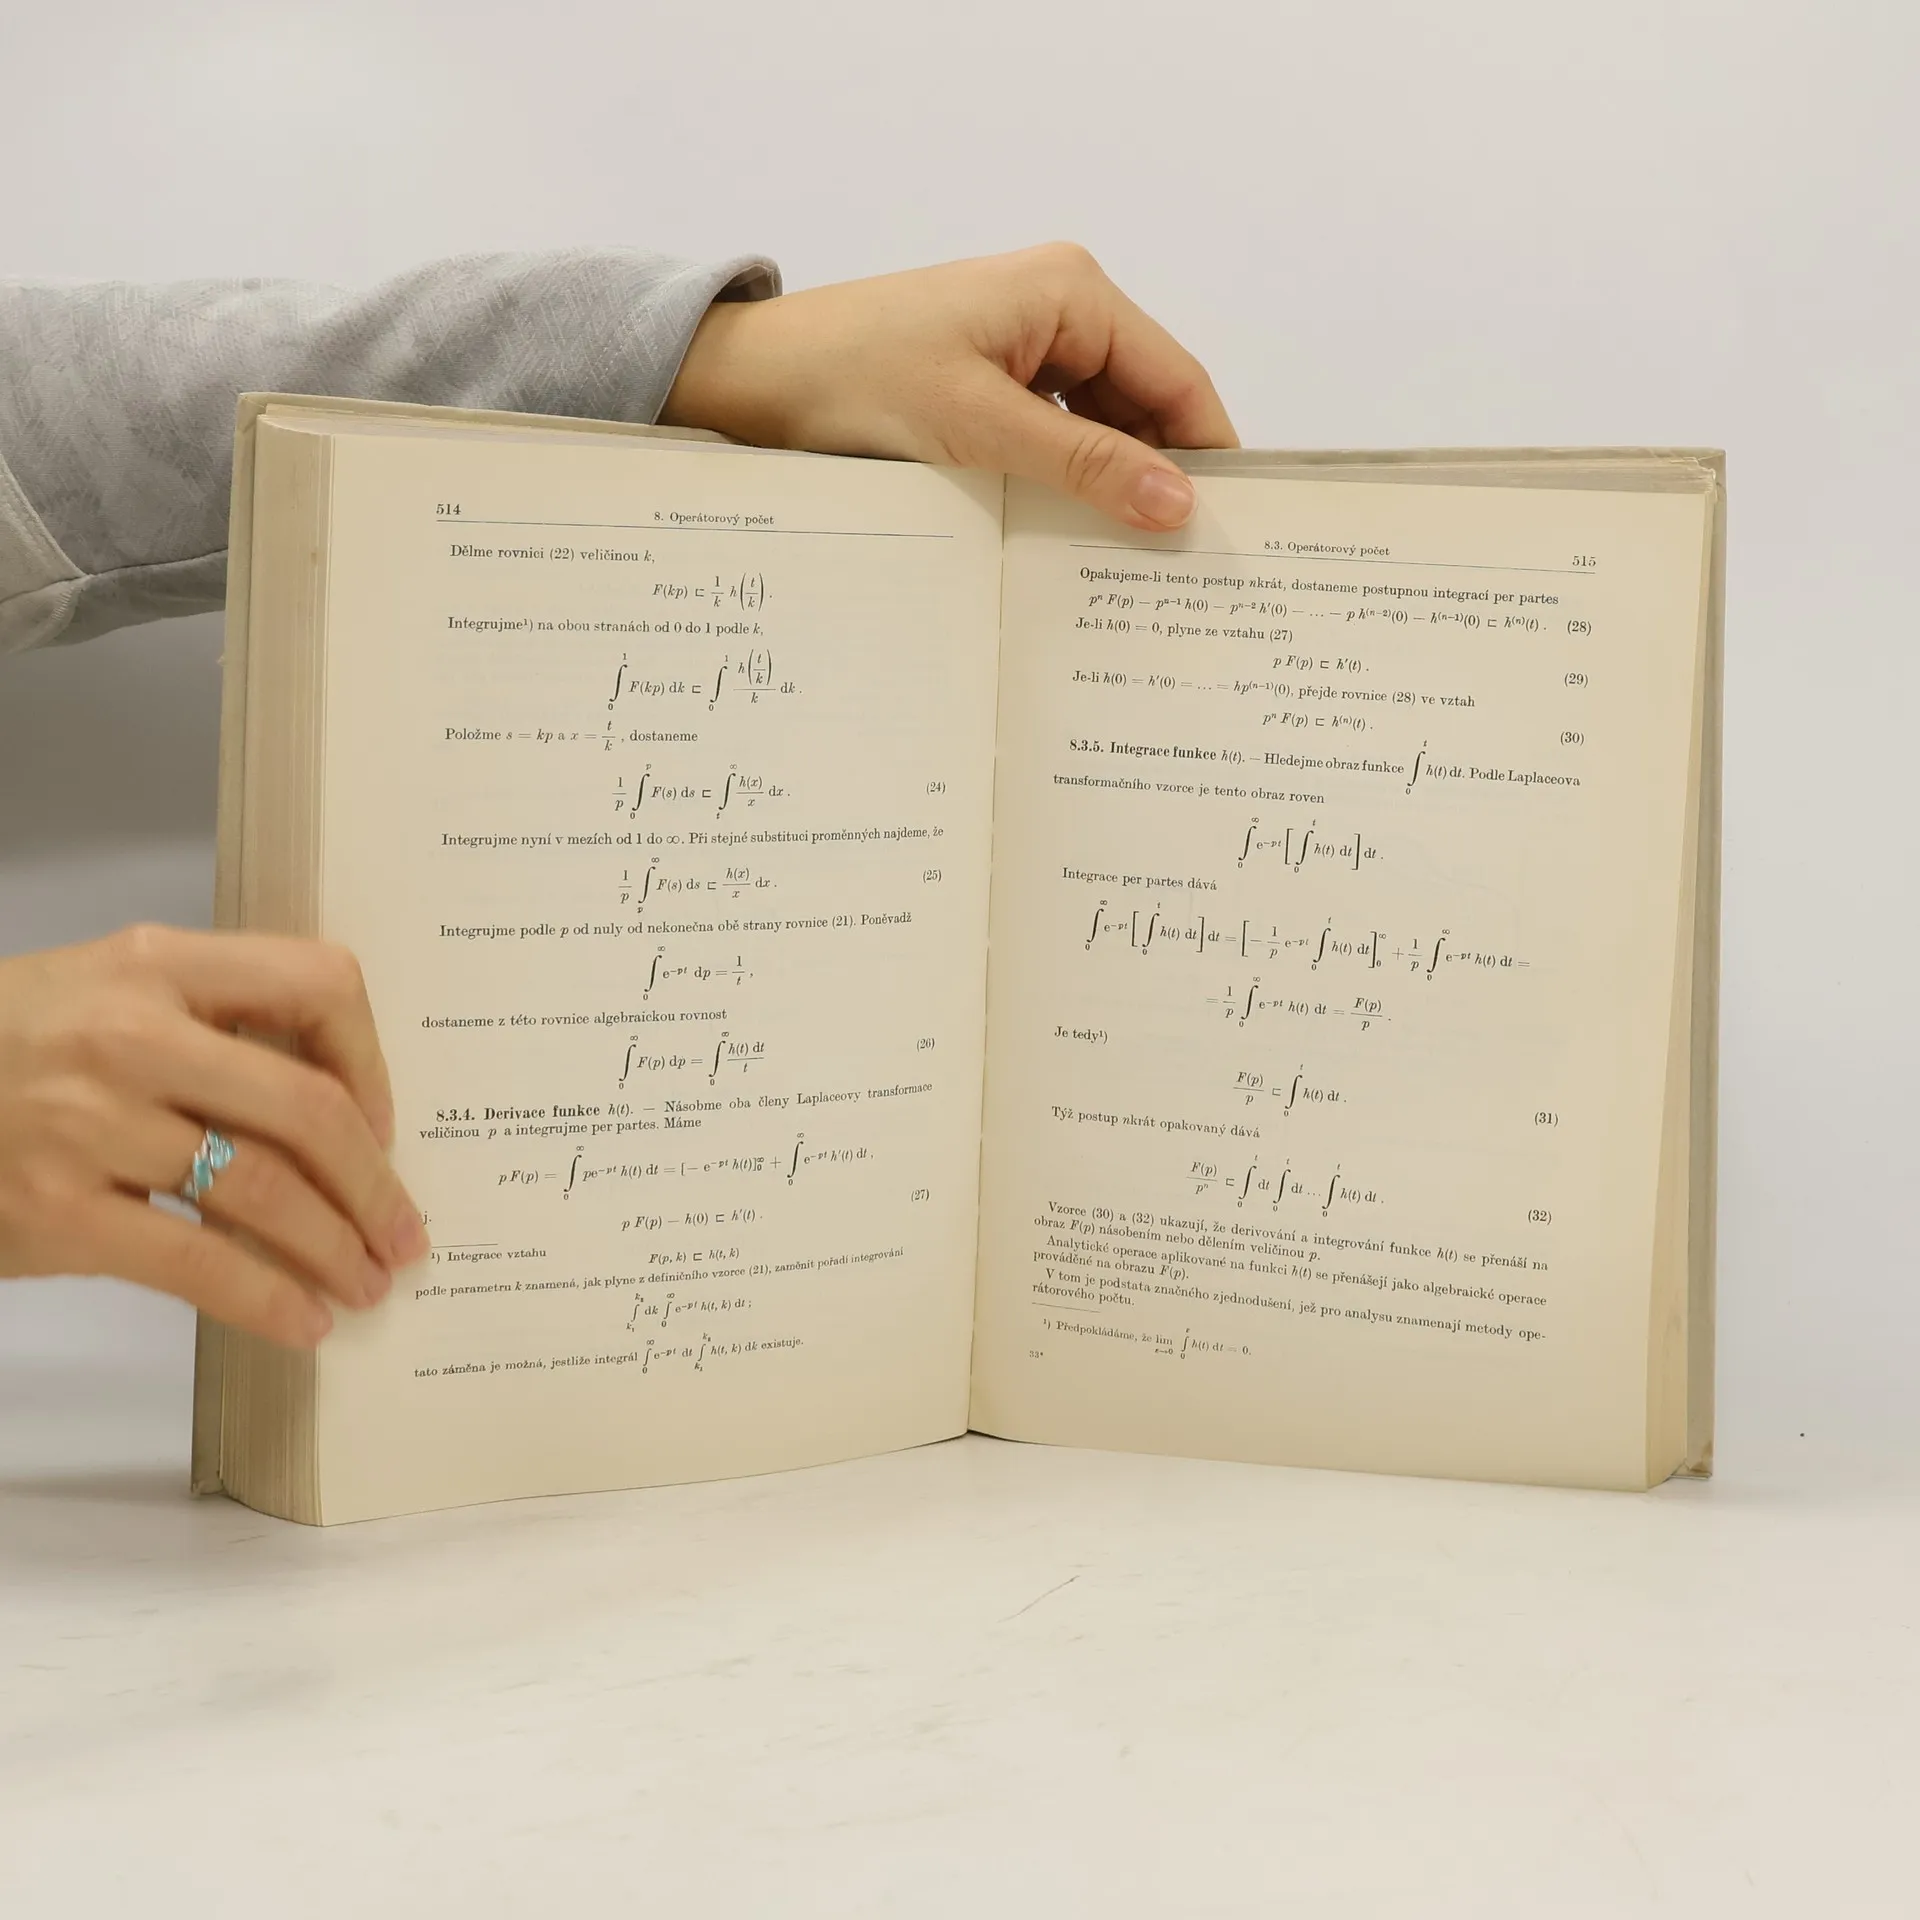 514
8. Operátorový počet
Dělme rovnici (22) veličinou k,
F(kp) ⊏ 1/k h(t/k) .
Integrujme¹) na obou stranách od 0 do 1 podle k,
∫₀¹ F(kp) dk ⊏ ∫₀¹ h(t/k)/k dk .
Položme s = kp a x = t/k , dostaneme
1/p ∫₀ᵖ F(s) ds ⊏ ∫ₜ^∞ h(x)/x dx . (24)
Integrujme nyní v mezích od 1 do ∞. Při stejné substituci proměnných najdeme, že
1/p ∫ₚ^∞ F(s) ds ⊏ h(x)/x dx . (25)
Integrujme podle p od nuly od nekonečna obě strany rovnice (21). Poněvadž
∫₀^∞ e^{−pt} dp = 1/t ,
dostaneme z této rovnice algebraickou rovnost
∫₀^∞ F(p) dp = ∫₀^∞ h(t) dt/t (26)
8.3.4. Derivace funkce h(t). — Násobme oba členy Laplaceovy transformace
veličinou p a integrujme per partes. Máme
p F(p) = ∫₀^∞ pe^{−pt} h(t) dt = [− e^{−pt} h(t)]₀^∞ + ∫₀^∞ e^{−pt} h′(t) dt ,
j.
p F(p) — h(0) ⊏ h′(t) . (27)
¹) Integrace vztahu
F(p, k) ⊏ h(t, k)
podle parametru k znamená, jak plyne z definičního vzorce (21), zaměnit pořadí integrování
∫_{k₁}^{k₂} dk ∫₀^∞ e^{−pt} h(t, k) dt ;
tato záměna je možná, jestliže integrál ∫₀^∞ e^{−pt} dt ∫_{k₁}^{k₂} h(t, k) dk existuje.
8.3. Operátorový počet
515
Opakujeme-li tento postup nkrát, dostaneme postupnou integrací per partes
pⁿ F(p) — pⁿ⁻¹ h(0) — pⁿ⁻² h′(0) — ... — p h⁽ⁿ⁻²⁾(0) — h⁽ⁿ⁻¹⁾(0) ⊏ h⁽ⁿ⁾(t) . (28)
Je-li h(0) = 0, plyne ze vztahu (27)
p F(p) ⊏ h′(t) . (29)
Je-li h(0) = h′(0) = ... = hp⁽ⁿ⁻¹⁾(0), přejde rovnice (28) ve vztah
pⁿ F(p) ⊏ h⁽ⁿ⁾(t) . (30)
8.3.5. Integrace funkce h(t). — Hledejme obraz funkce ∫₀ᵗ h(t) dt. Podle Laplaceova
transformačního vzorce je tento obraz roven
∫₀^∞ e^{−pt} [∫₀ᵗ h(t) dt] dt .
Integrace per partes dává
∫₀^∞ e^{−pt} [∫₀ᵗ h(t) dt] dt = [− 1/p e^{−pt} ∫₀ᵗ h(t) dt]₀^∞ + 1/p ∫₀^∞ e^{−pt} h(t) dt =
= 1/p ∫₀^∞ e^{−pt} h(t) dt = F(p)/p .
Je tedy¹)
F(p)/p ⊏ ∫₀ᵗ h(t) dt . (31)
Týž postup nkrát opakovaný dává
F(p)/pⁿ ⊏ ∫₀ᵗ dt ∫₀ᵗ dt ... ∫₀ᵗ h(t) dt . (32)
Vzorce (30) a (32) ukazují, že derivování a integrování funkce h(t) se přenáší na
obraz F(p) násobením nebo dělením veličinou p.
Analytické operace aplikované na funkci h(t) se přenášejí jako algebraické operace
prováděné na obrazu F(p).
V tom je podstata značného zjednodušení, jež pro analysu znamenají metody ope-
rátorového počtu.
¹) Předpokládáme, že lim_{ε→0} ∫₀^ε h(t) dt = 0.
33*